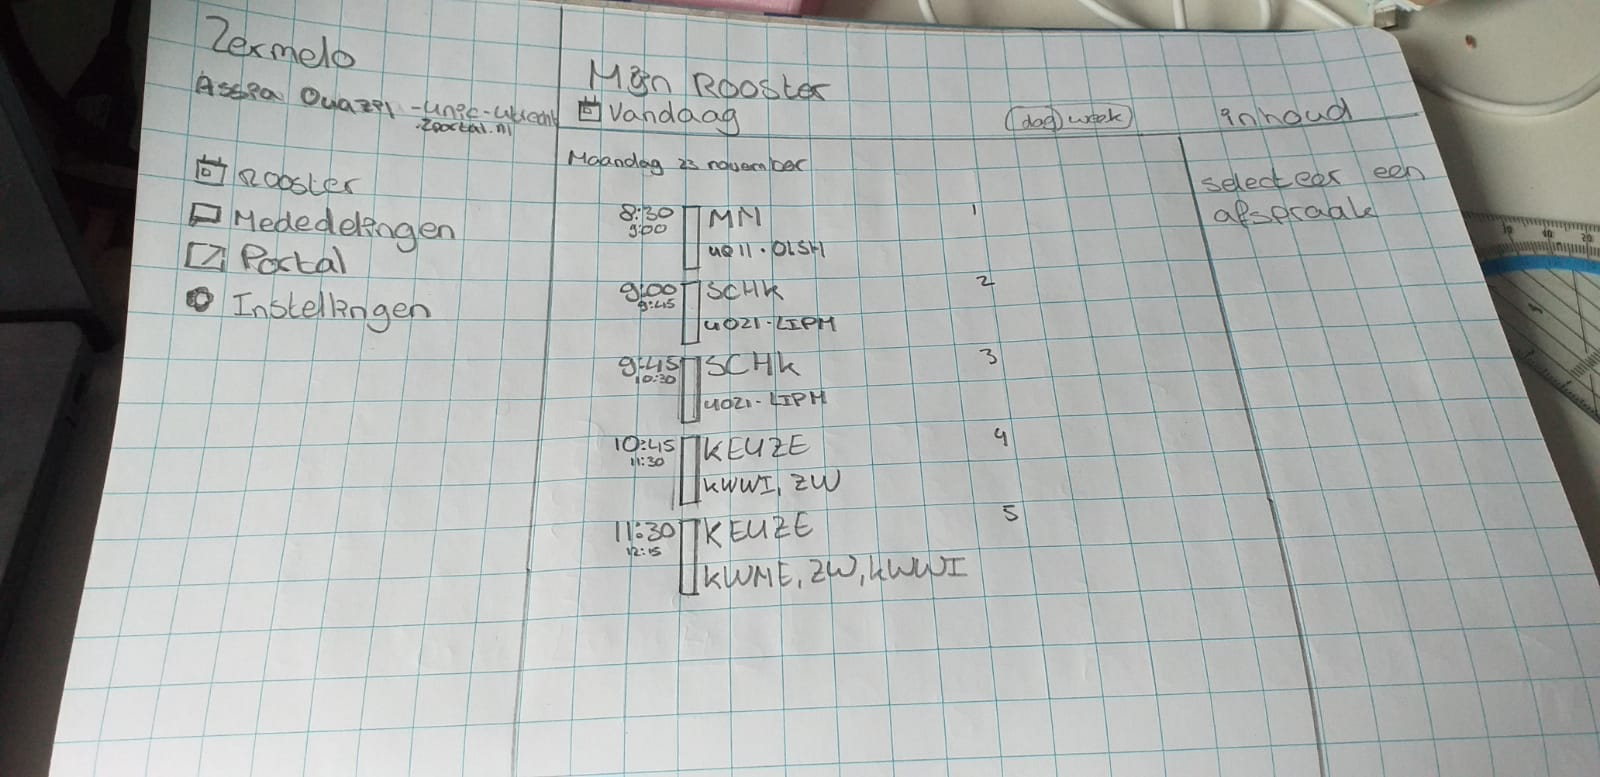 Zermelo
Assia Ouazzi -unic-utrecht
.zportal.nl
Rooster
Mededelingen
Portal
Instellingen
Mijn Rooster
Vandaag
dag week
Maandag 23 november
8:30
9:00
MM 1
u011.OLSH
9:00
9:45
SCHK 2
u021.LIPM
9:45
10:30
SCHK 3
u021.LIPM
10:45
11:30
KEUZE 4
KWWI, ZW
11:30
12:15
KEUZE 5
KWME, ZW, KWWI
inhoud
selecteer een
afspraak